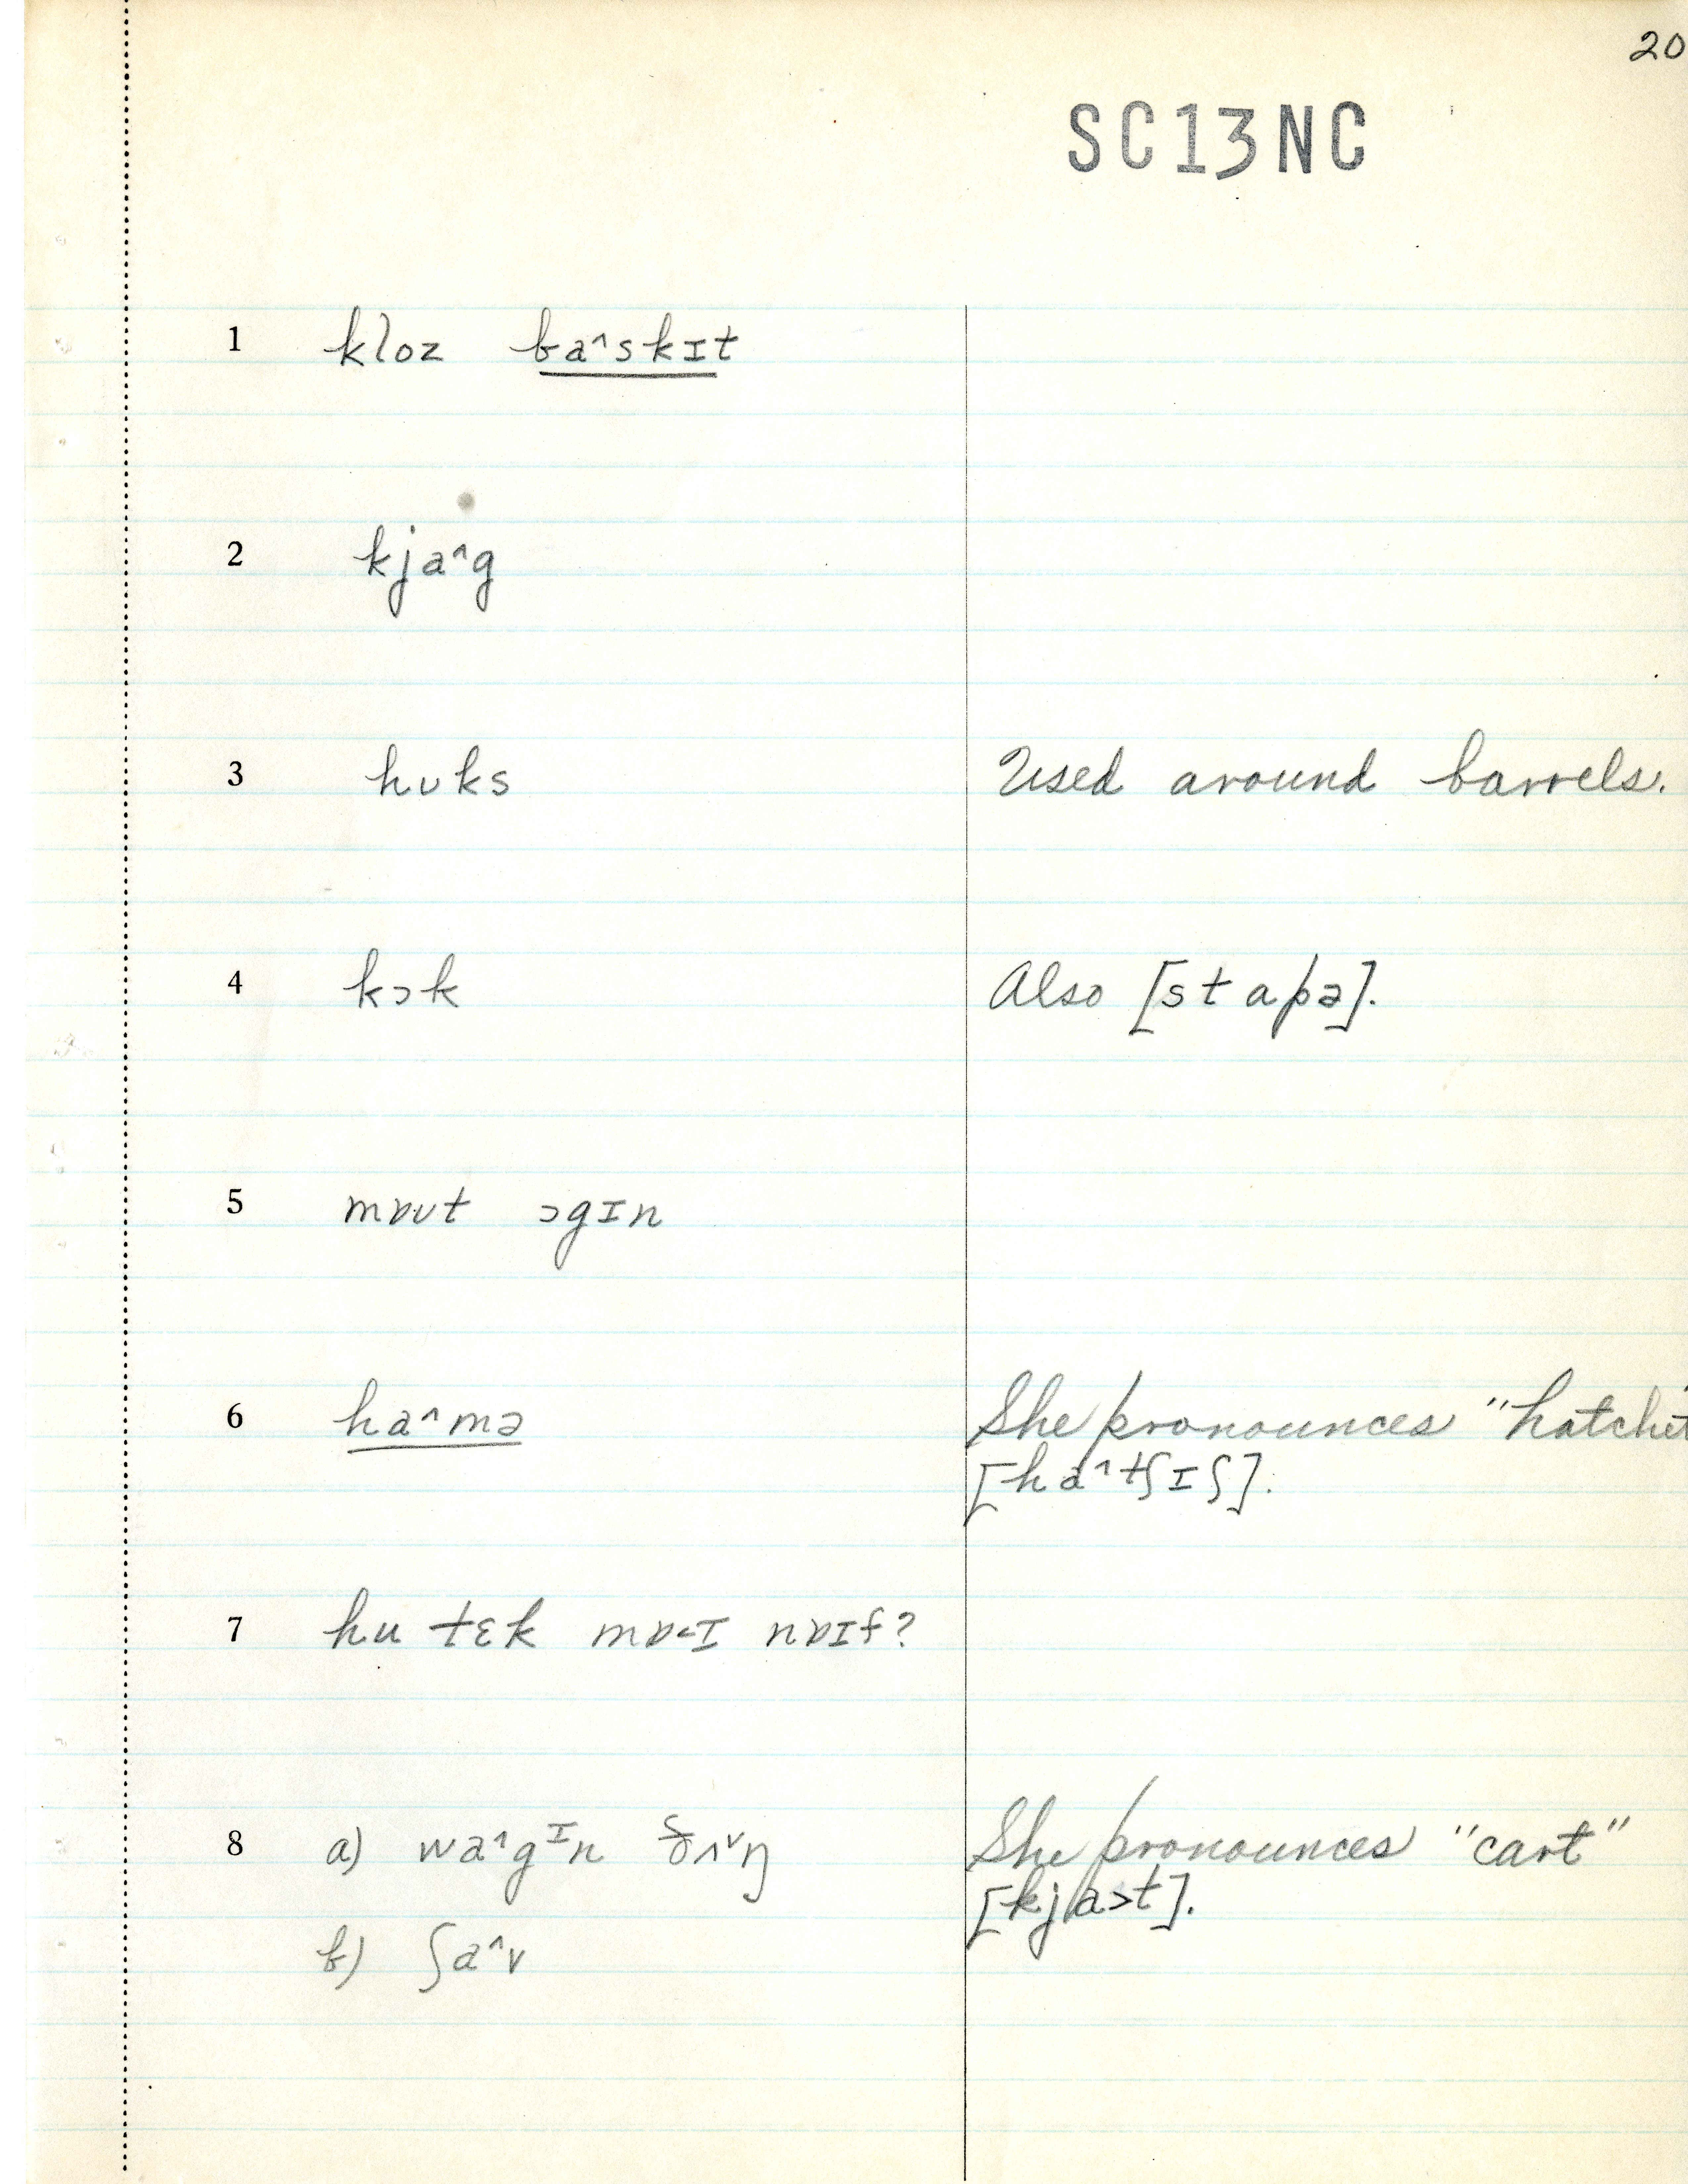 20
SC13NC
1 kloz ba^skɪt
2 kja^g
3 hʊks Used around barrels.
4 kɔk Also [stapə].
5 mɒʊt ɔgɪn
6 ha^mə She pronounces "hatchet"
[ha^tʃɪʃ].
7 hu tɛk mɒ<ɪ nɒɪf?
8 a) wa^gᶦn ʌᵛŋ She pronounces "cart"
[kja>t].
b) ʃa^v